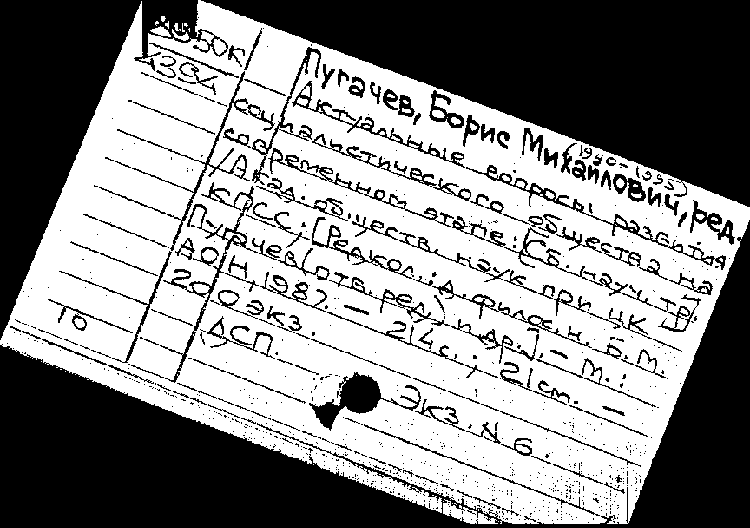 Пугачев, Борис Михайлович, ред.
(1990-1995)
4394
Актуальные вопросы развития
социалистического общества на
современном этапе: [Сб. науч. тр.]
/Акад. обществ. наук при ЦК
КПСС; [Редкол.: д. филос. н. Б.М.
Пугачев (отв. ред.) и др.]. - М.:
АОН, 1987. - 214 с.; 21 см. -
200 экз.
ДСП.
Экз. N 6.
10